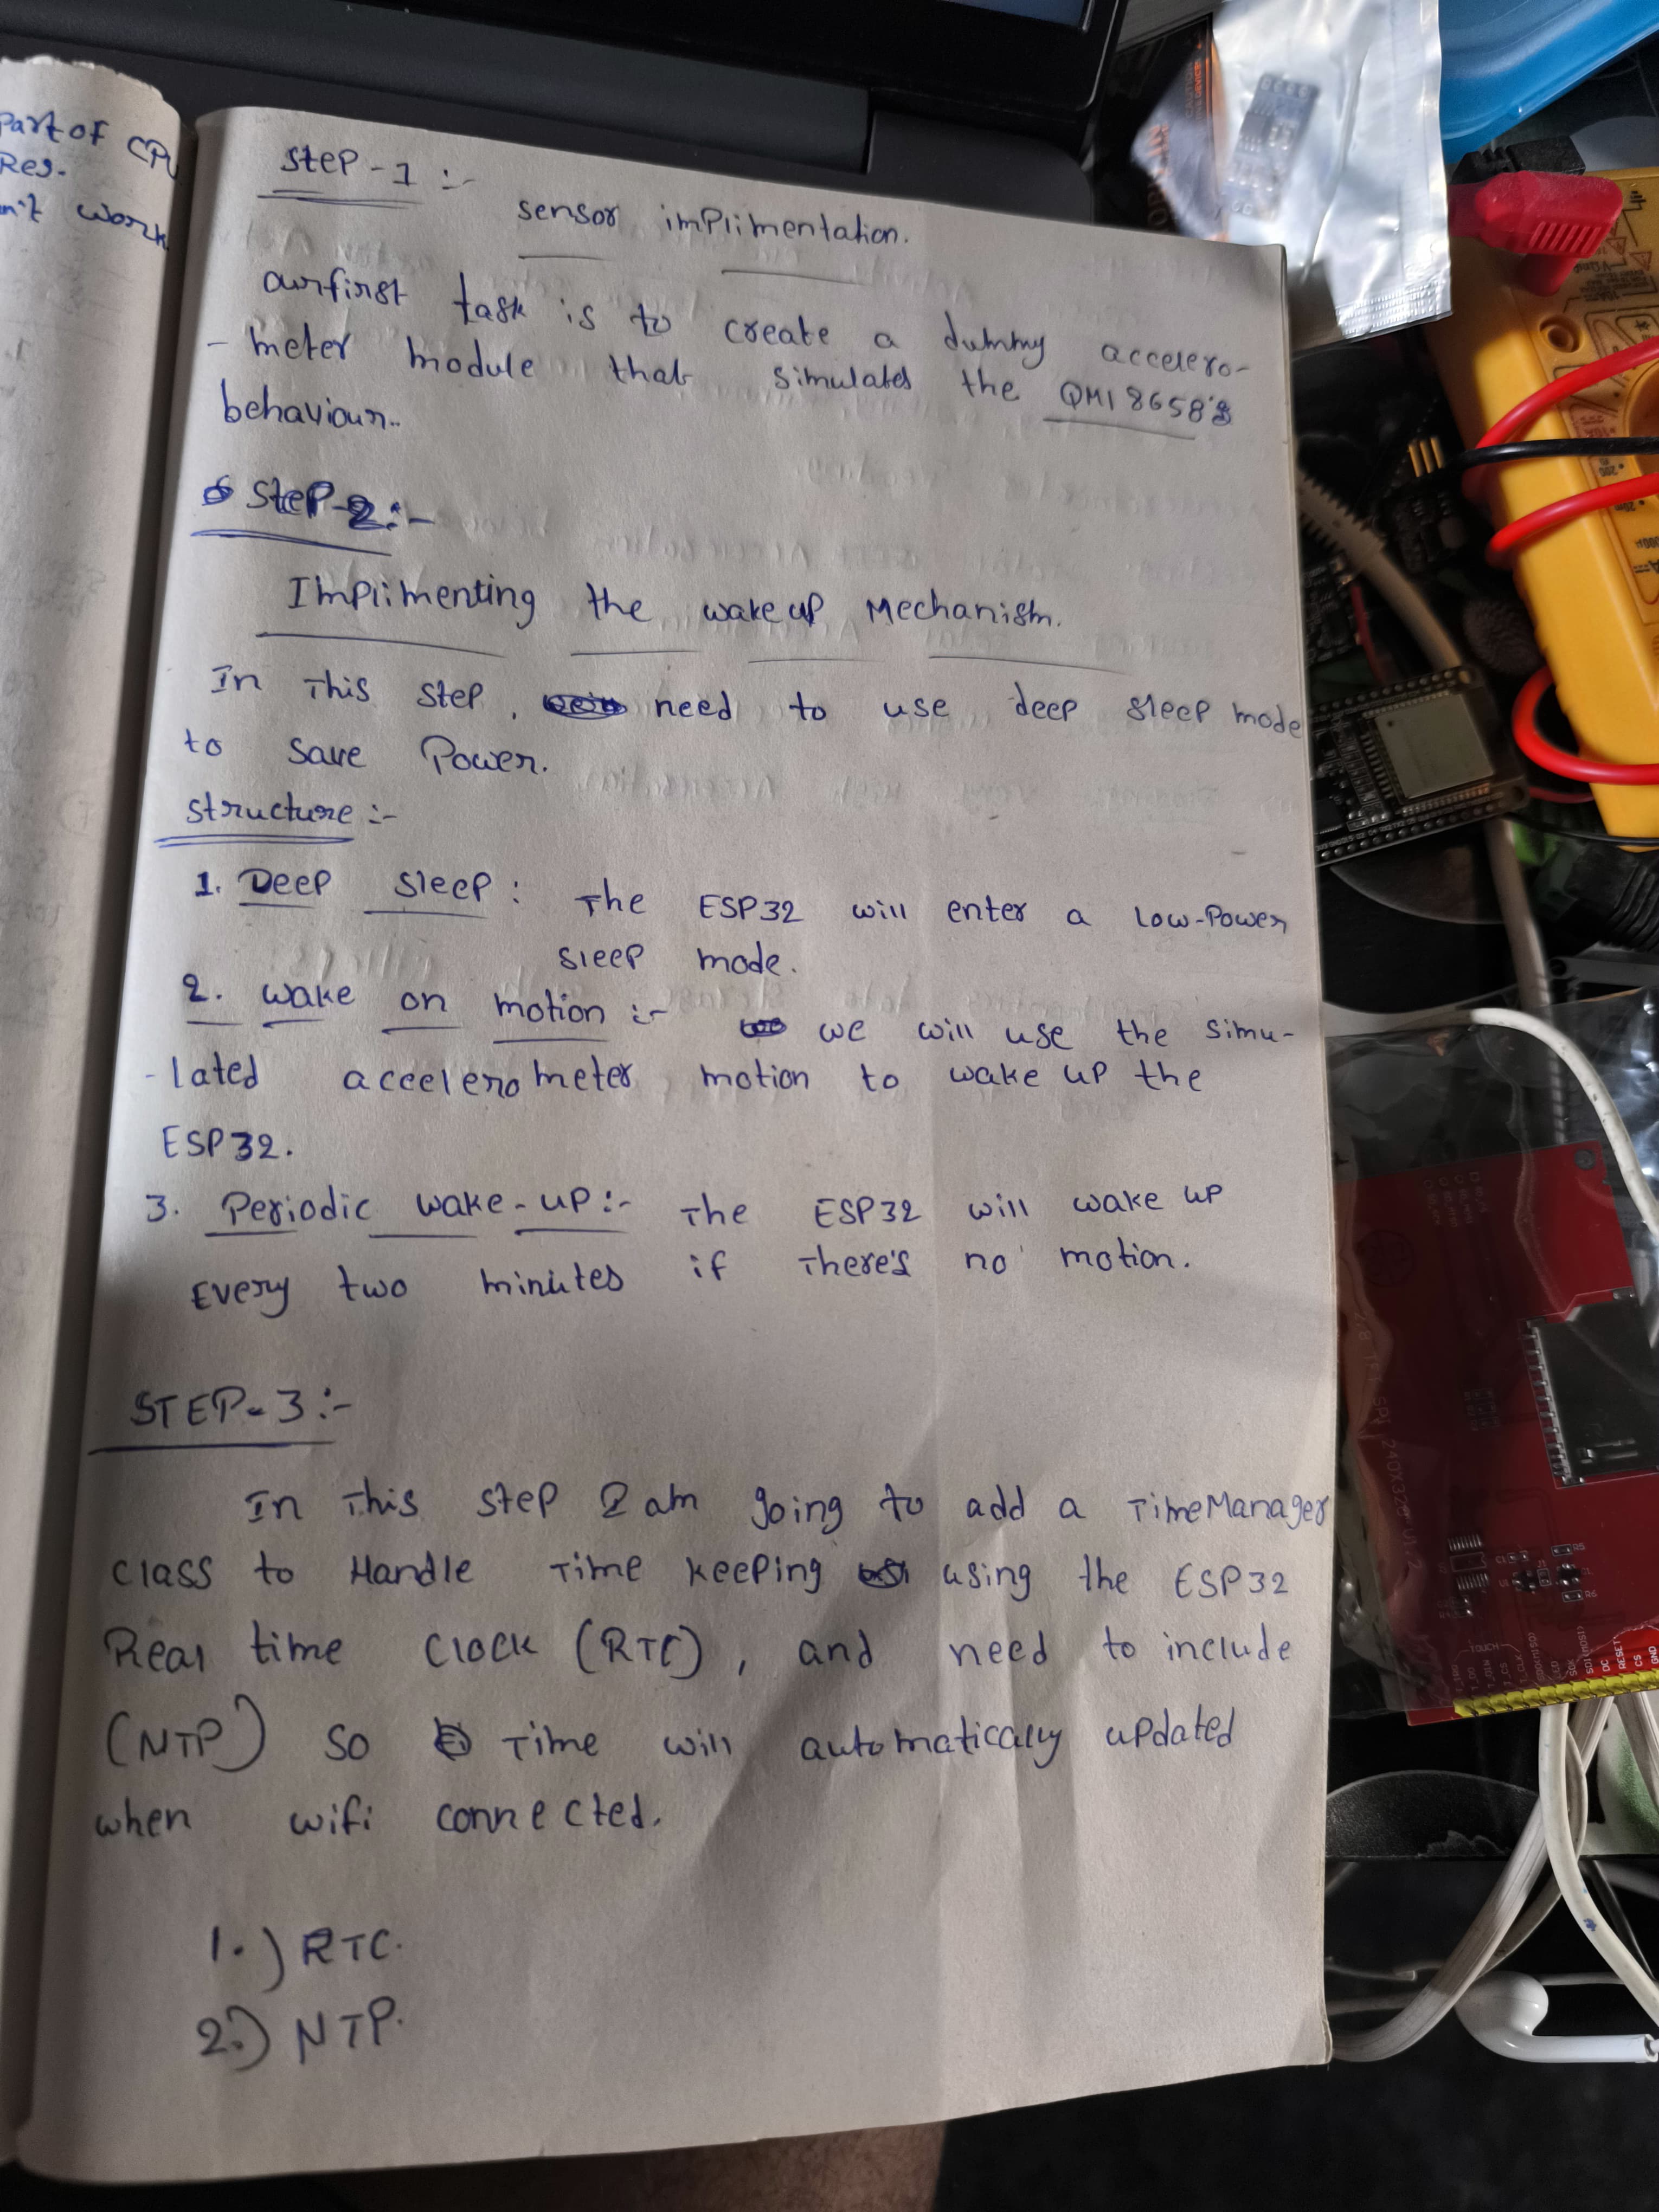 Part of CPU
Res.
n't work
Step-1 :-
sensor implimentation.
our first task is to create a dummy accelero-
- meter module that simulates the QMI8658's
behaviour..
Step-2:-
Implimenting the wakeup Mechanism.
In This step, need to use deep sleep mode
to save Power.
structure :-
1. Deep sleep : The ESP32 will enter a Low-Power
sleep mode.
2. wake on motion :- we will use the simu-
- lated accelerometer motion to wake up the
ESP32.
3. Periodic wake-up :- The ESP32 will wake up
Every two minutes if There's no motion.
STEP-3 :-
In This step I am going to add a TimeManager
class to Handle Time keeping using the ESP32
Real time Clock (RTC), and need to include
(NTP) so Time will automatically updated
when wifi connected.
1.) RTC.
2.) NTP.
TOUCH
SDI(MOSI)
DC
RESET
CS
GND